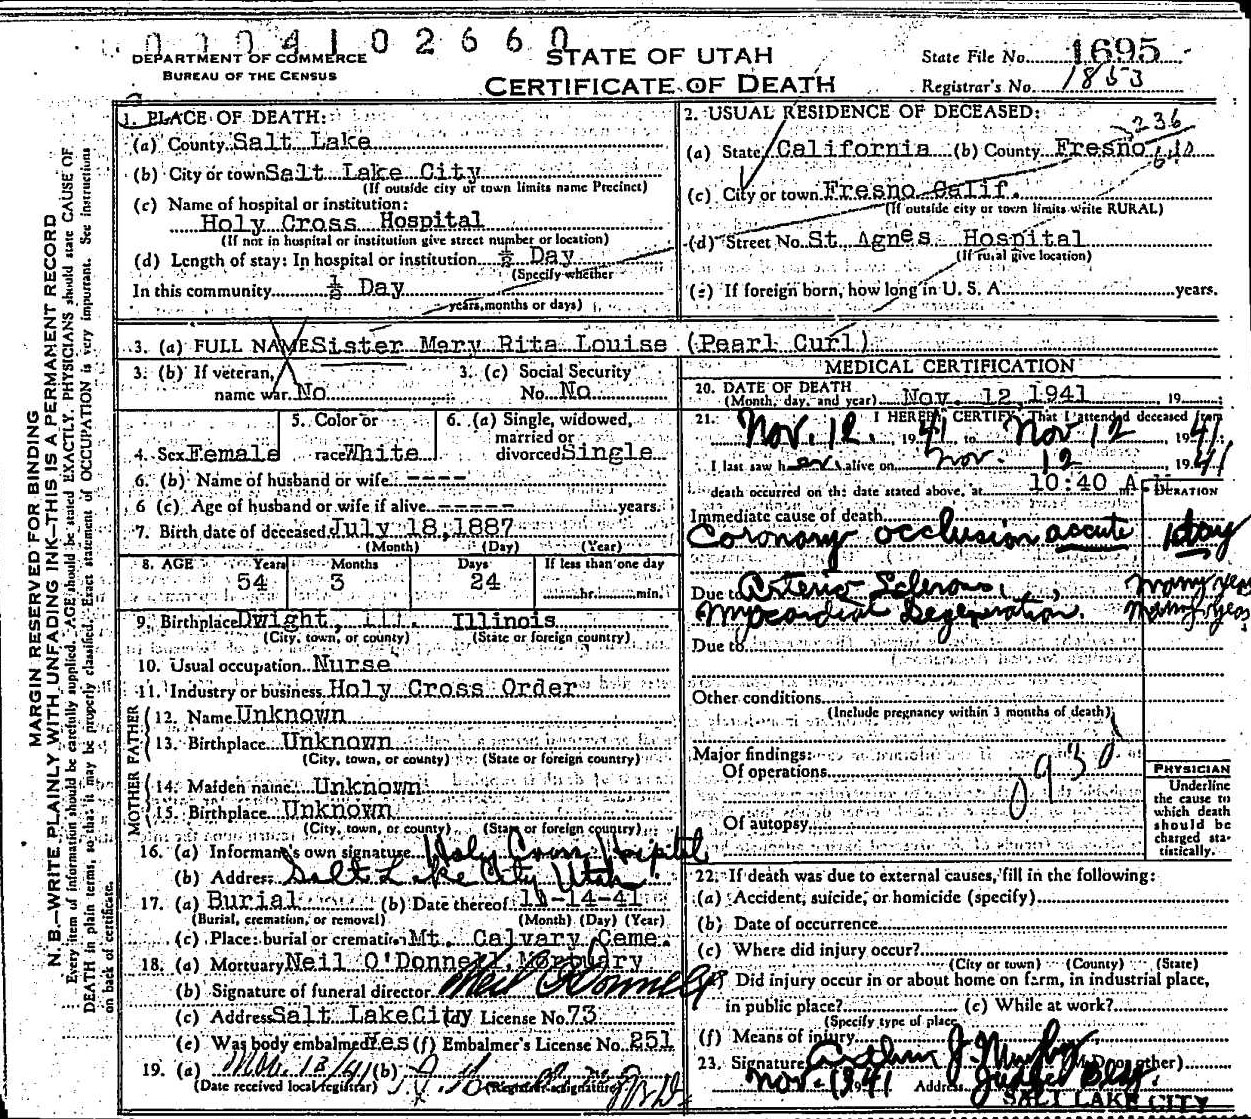 0 1 0 4 1 0 2 6 6 0
DEPARTMENT OF COMMERCE
BUREAU OF THE CENSUS
STATE OF UTAH
CERTIFICATE OF DEATH
State File No. 1695
Registrar's No. 1853
MARGIN RESERVED FOR BINDING
N. B.—WRITE PLAINLY WITH UNFADING INK—THIS IS A PERMANENT RECORD
Every item of information should be carefully supplied. AGE should be stated EXACTLY. PHYSICIANS should state CAUSE OF
DEATH in plain terms, so that it may be properly classified. Exact statement of OCCUPATION is very important. See instructions
on back of certificate.
1. PLACE OF DEATH:
(a) County Salt Lake
(b) City or town Salt Lake City
(If outside city or town limits name Precinct)
(c) Name of hospital or institution:
Holy Cross Hospital
(If not in hospital or institution give street number or location)
(d) Length of stay: In hospital or institution ½ Day
(Specify whether
In this community ½ Day
years, months or days)
2. USUAL RESIDENCE OF DECEASED:
236
(a) State California (b) County Fresno
(c) City or town Fresno Calif.
(If outside city or town limits write RURAL)
(d) Street No. St Agnes Hospital
(If rural give location)
(e) If foreign born, how long in U. S. A. years.
3. (a) FULL NAME Sister Mary Rita Louise (Pearl Curl)
3. (b) If veteran, name war No
3. (c) Social Security No. No
4. Sex Female
5. Color or race White
6. (a) Single, widowed, married or divorced Single
6. (b) Name of husband or wife ----
6 (c) Age of husband or wife if alive ----- years.
7. Birth date of deceased July 18, 1887
(Month) (Day) (Year)
8. AGE Years Months Days If less than one day
54 3 24 hr. min.
9. Birthplace Dwight, Ill. Illinois
(City, town, or county) (State or foreign country)
10. Usual occupation Nurse
11. Industry or business Holy Cross Order
FATHER
12. Name Unknown
13. Birthplace Unknown
(City, town, or county) (State or foreign country)
MOTHER
14. Maiden name Unknown
15. Birthplace Unknown
(City, town, or county) (State or foreign country)
16. (a) Informant's own signature Holy Cross Hospital
(b) Address Salt Lake City Utah
17. (a) Burial (b) Date thereof 11-14-41
(Burial, cremation, or removal) (Month) (Day) (Year)
(c) Place: burial or cremation Mt. Calvary Ceme.
18. (a) Mortuary Neil O'Donnell Mortuary
(b) Signature of funeral director Neil O'Donnell
(c) Address Salt Lake City (d) License No. 73
(e) Was body embalmed Yes (f) Embalmer's License No. 251
19. (a) Nov. 13/41 (b)
(Date received local registrar) (Registrar's signature)
MEDICAL CERTIFICATION
20. DATE OF DEATH
(Month, day, and year) Nov. 12, 1941 , 19
21. I HEREBY CERTIFY, That I attended deceased from
Nov. 12. , 1941 to Nov 12 , 1941;
I last saw her alive on Nov. 12 , 1941
death occurred on the date stated above, at 10:40 A m.
DURATION
Immediate cause of death
Coronary occlusion accute 1 day
Due to Arterio Sclerosis, many years
Myocardial Degeneration. Many years
Due to
Other conditions
(Include pregnancy within 3 months of death)
Major findings:
Of operations
0930
Of autopsy
PHYSICIAN
Underline
the cause to
which death
should be
charged sta-
tistically.
22. If death was due to external causes, fill in the following:
(a) Accident, suicide, or homicide (specify)
(b) Date of occurrence
(c) Where did injury occur?
(City or town) (County) (State)
(d) Did injury occur in or about home on farm, in industrial place,
in public place? (e) While at work?
(Specify type of place
(f) Means of injury
23. Signature Arthur J. Murphy (M D or other)
Nov. 1941 Address Judge Bldg.
SALT LAKE CITY